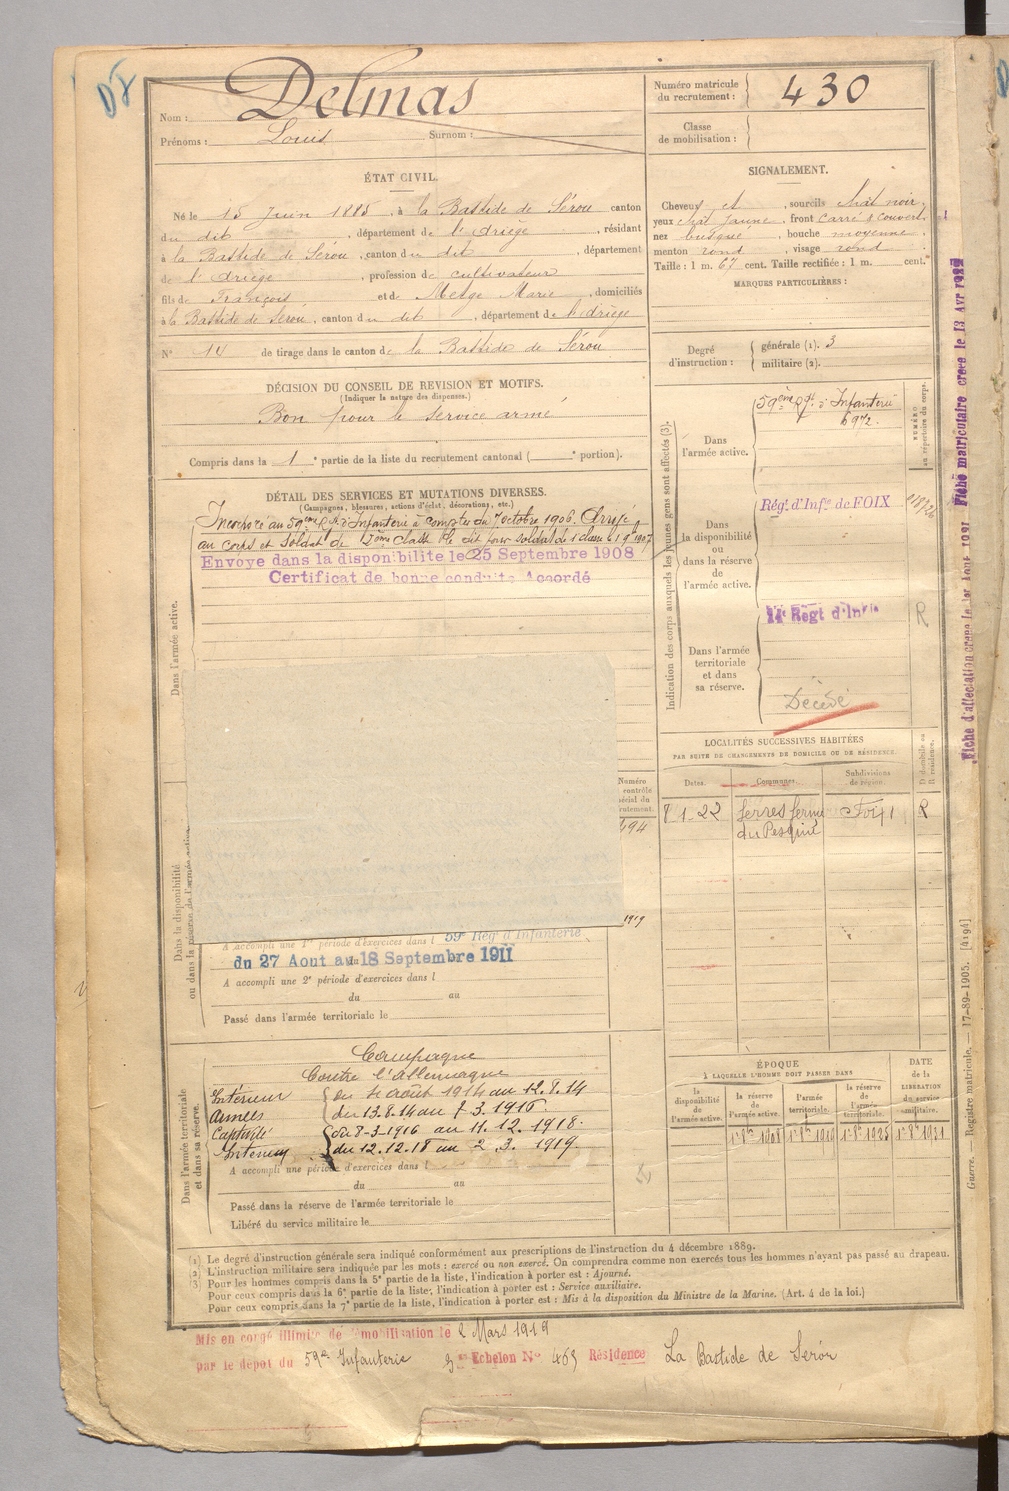 Nom : Delmas
Prénoms : Louis Surnom :
Numéro matricule du recrutement : 430
Classe de mobilisation :
ÉTAT CIVIL.
Né le 15 Juin 1885, à la Bastide de Sérou canton
du dit, département de l'Ariège, résidant
à la Bastide de Sérou, canton du dit, département
de l'Ariège, profession de cultivateur
fils de François et de Metge Marie, domiciliés
à la Bastide de Sérou, canton du dit, département de l'Ariège
N° 14 de tirage dans le canton de la Bastide de Sérou
DÉCISION DU CONSEIL DE REVISION ET MOTIFS.
(Indiquer la nature des dispenses.)
Bon pour le service armé
Compris dans la 1e partie de la liste du recrutement cantonal ( e portion).
SIGNALEMENT.
Cheveux et, sourcils chât noir,
yeux chât jaune, front carré & couvert
nez busqué, bouche moyenne
menton rond, visage rond
Taille : 1 m. 67 cent. Taille rectifiée : 1 m. cent.
MARQUES PARTICULIÈRES :
Degré d'instruction :
générale (1). 3
militaire (2).
DÉTAIL DES SERVICES ET MUTATIONS DIVERSES.
(Campagnes, blessures, actions d'éclat, décorations, etc.)
Dans l'armée active.
Incorporé au 59ème Rgt d'Infanterie à compter du 7 octobre 1906. Arrivé
au corps et Soldat de 2ème classe le dit jour soldat de 1e classe le 1 9 1907
Envoye dans la disponibilite le 25 Septembre 1908
Certificat de bonne conduite Accordé
Indication des corps auxquels les jeunes gens sont affectés (3).
NUMÉRO au répertoire du corps.
Dans l'armée active.
59ème Rgt d'Infanterie
6972.
Dans la disponibilité ou dans la réserve de l'armée active.
Régt d'Infie de FOIX
Dans l'armée territoriale et dans sa réserve.
Régt d'Infie
R
Décédé
LOCALITÉS SUCCESSIVES HABITÉES
PAR SUITE DE CHANGEMENTS DE DOMICILE OU DE RÉSIDENCE.
Dates. Communes. Subdivisions de région. D domicile ou R résidence.
1-22 Serres ferme Foix R
du Pesquié
Dans la disponibilité ou dans la réserve de l'armée active.
Numéro
contrôle
spécial du
recrutement.
1919
A accompli une 1re période d'exercices dans l 59e Rég d'Infanterie
du 27 Aout au 18 Septembre 1911
A accompli une 2e période d'exercices dans l
du au
Passé dans l'armée territoriale le
Dans l'armée territoriale et dans sa réserve.
Campagne
Contre l'Allemagne
Intérieur du 4 août 1914 au 12.8.14
Armées du 13.8.14 au 7-3.1916.
Captivité du 8-3-1916 au 11.12.1918.
Intérieur du 12.12.18 au 2.3.1919.
A accompli une période d'exercices dans l
du au
Passé dans la réserve de l'armée territoriale le
Libéré du service militaire le
ÉPOQUE
À LAQUELLE L'HOMME DOIT PASSER DANS
DATE de la LIBÉRATION du service militaire.
la disponibilité de l'armée active.
la réserve de l'armée active.
l'armée territoriale.
la réserve de l'armée territoriale.
1er 8bre 1908
(1) Le degré d'instruction générale sera indiqué conformément aux prescriptions de l'instruction du 4 décembre 1889.
(2) L'instruction militaire sera indiquée par les mots : exercé ou non exercé. On comprendra comme non exercés tous les hommes n'ayant pas passé au drapeau.
(3) Pour les hommes compris dans la 5e partie de la liste, l'indication à porter est : Ajourné.
Pour ceux compris dans la 6e partie de la liste, l'indication à porter est : Service auxiliaire.
Pour ceux compris dans la 7e partie de la liste, l'indication à porter est : Mis à la disposition du Ministre de la Marine. (Art. 4 de la loi.)
Mis en congé illimité de démobilisation le 2 Mars 1919
par le dépot du 59e Infanterie 3me Echelon N° 463 Résidence La Bastide de Serou
Guerre. — Registre matricule. — 17-89-1905. [4194]
Fiche matriculaire creee le 13 Avr
Fiche d'affectation creee le